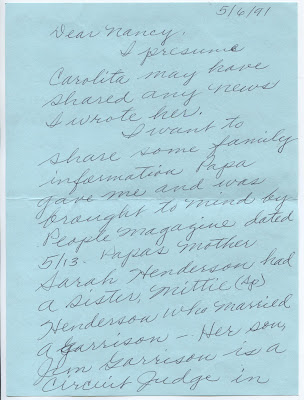 5/6/91
Dear Nancy.
I presume
Carolita may have
shared any news
I wrote her.
I want to
share some family
information Papa
gave me and was
brought to mind by
People Magazine dated
5/13. Papas Mother
Sarah Henderson had
a sister, Mittie (Sp)
Henderson who married
a Garrison – Her son,
Jim Garrison is a
Circuit Judge in